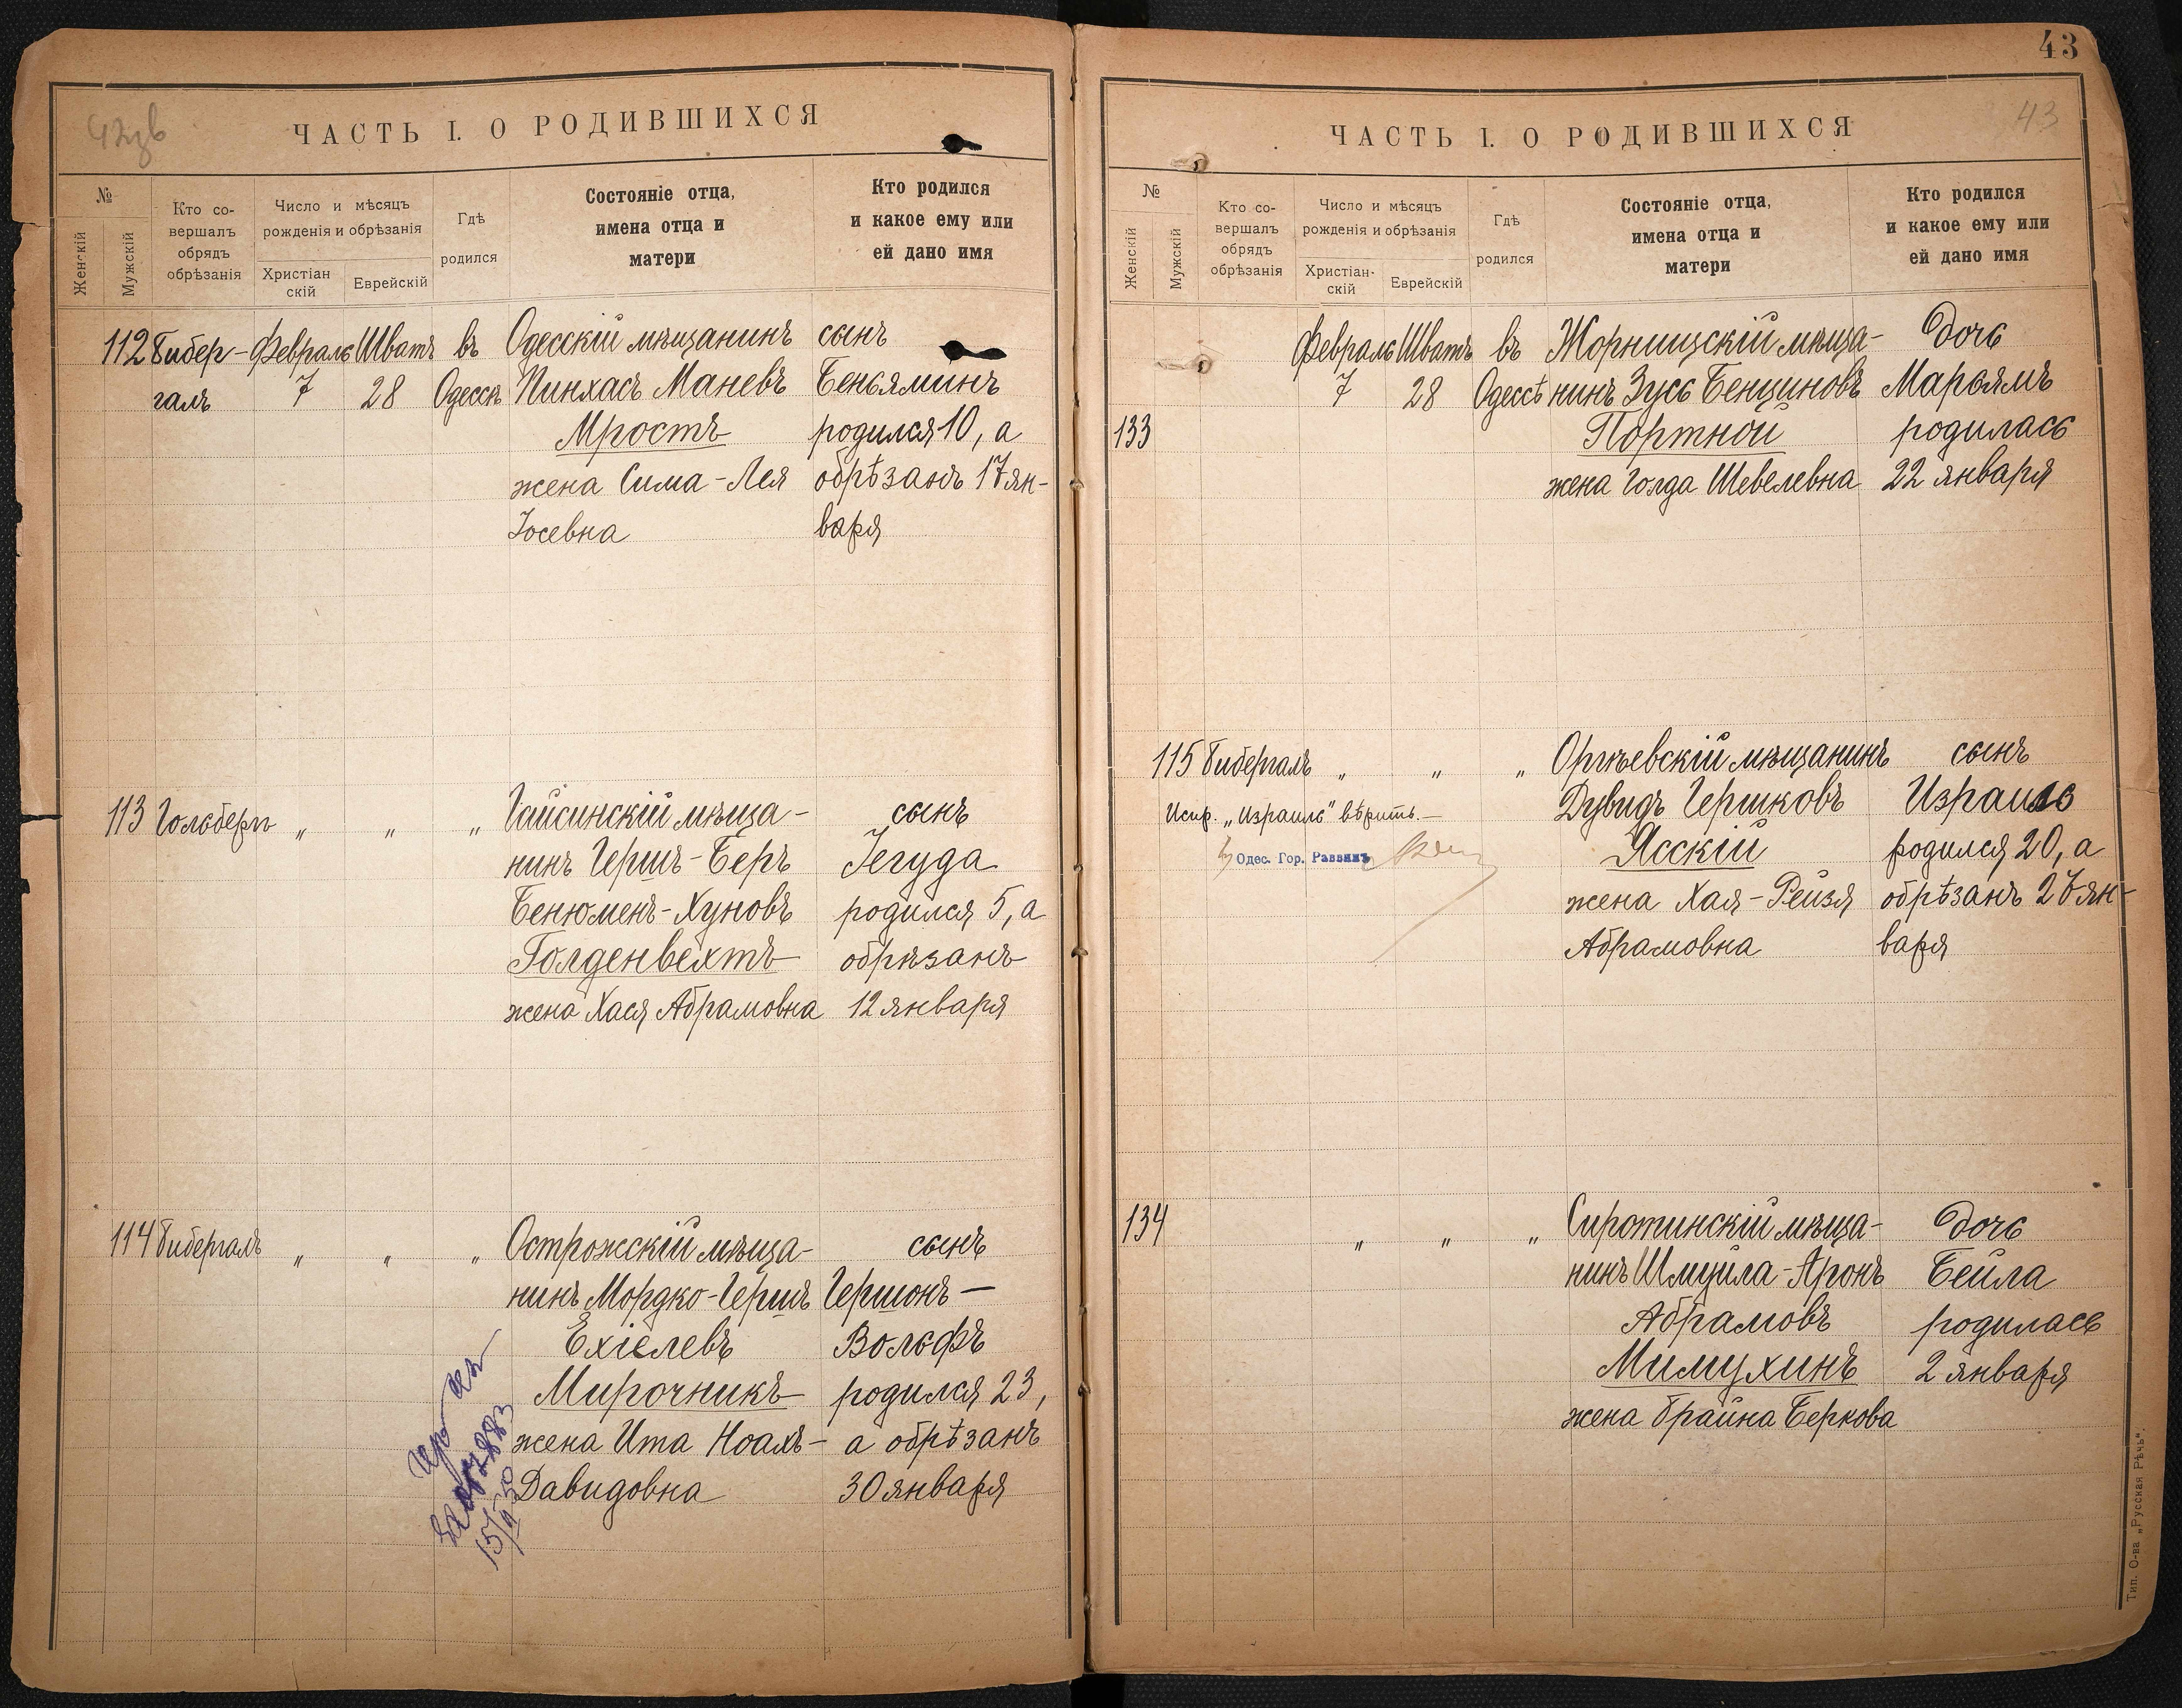 ЧАСТЬ I. О РОДИВШИХСЯ
№
Женскій
Мужскій
Кто со-
вершалъ
обрядъ
обрѣзанія
Число и мѣсяцъ
рожденія и обрѣзанія
Христіан
скій
Еврейскій
Гдѣ
родился
Состояніе отца,
имена отца и
матери
Кто родился
и какое ему или
ей дано имя
112 Гибер- Февраль Шватъ въ Одесскій мѣщанинъ сынъ
галъ 7 28 Одессѣ Пинхасъ Маневъ Беньяминъ
Мростъ родился 10, а
жена Сима-Лея обрѣзанъ 17 ян-
Іосевна варя
113 Гольдбергъ „ „ „ Гайсинскій мѣща- сынъ
нинъ Гершъ-Беръ Іегуда
Бенюменъ-Хуновъ родился 5, а
Голденвехтъ обрѣзанъ
жена Хася Абрамовна 12 января
114 Гибергалъ „ „ „ Острожскій мѣща- сынъ
нинъ Мордко-Гершъ Гершонъ-
Ехіелевъ Вольфъ
Мирочникъ родился 23,
жена Ита Ноахъ- а обрѣзанъ
Давидовна 30 января
43
43
ЧАСТЬ I. О РОДИВШИХСЯ
№
Женскій
Мужскій
Кто со-
вершалъ
обрядъ
обрѣзанія
Число и мѣсяцъ
рожденія и обрѣзанія
Христіан-
скій
Еврейскій
Гдѣ
родился
Состояніе отца,
имена отца и
матери
Кто родился
и какое ему или
ей дано имя
Февраль Шватъ въ Жорнищскій мѣща- дочь
7 28 Одессѣ нинъ Зусь Бенционовъ Марьямъ
133 Портной родилась
жена Голда Шевелевна 22 января
115 Гибергалъ „ „ „ Оргѣевскій мѣщанинъ сынъ
Испр. „Израиль" вѣрить.— Дувидъ Гершковъ Израиль
Одес. Гор. Раввинъ Ясскій родился 20, а
жена Хая-Рейзя обрѣзанъ 27 ян-
Абрамовна варя
134 „ „ „ Сиротинскій мѣща- дочь
нинъ Шмуйла-Аронъ Бейла
Абрамовъ родилась
Мимухинъ 2 января
жена Брайна Беркова
Тип. О-ва „Русская Рѣчь".